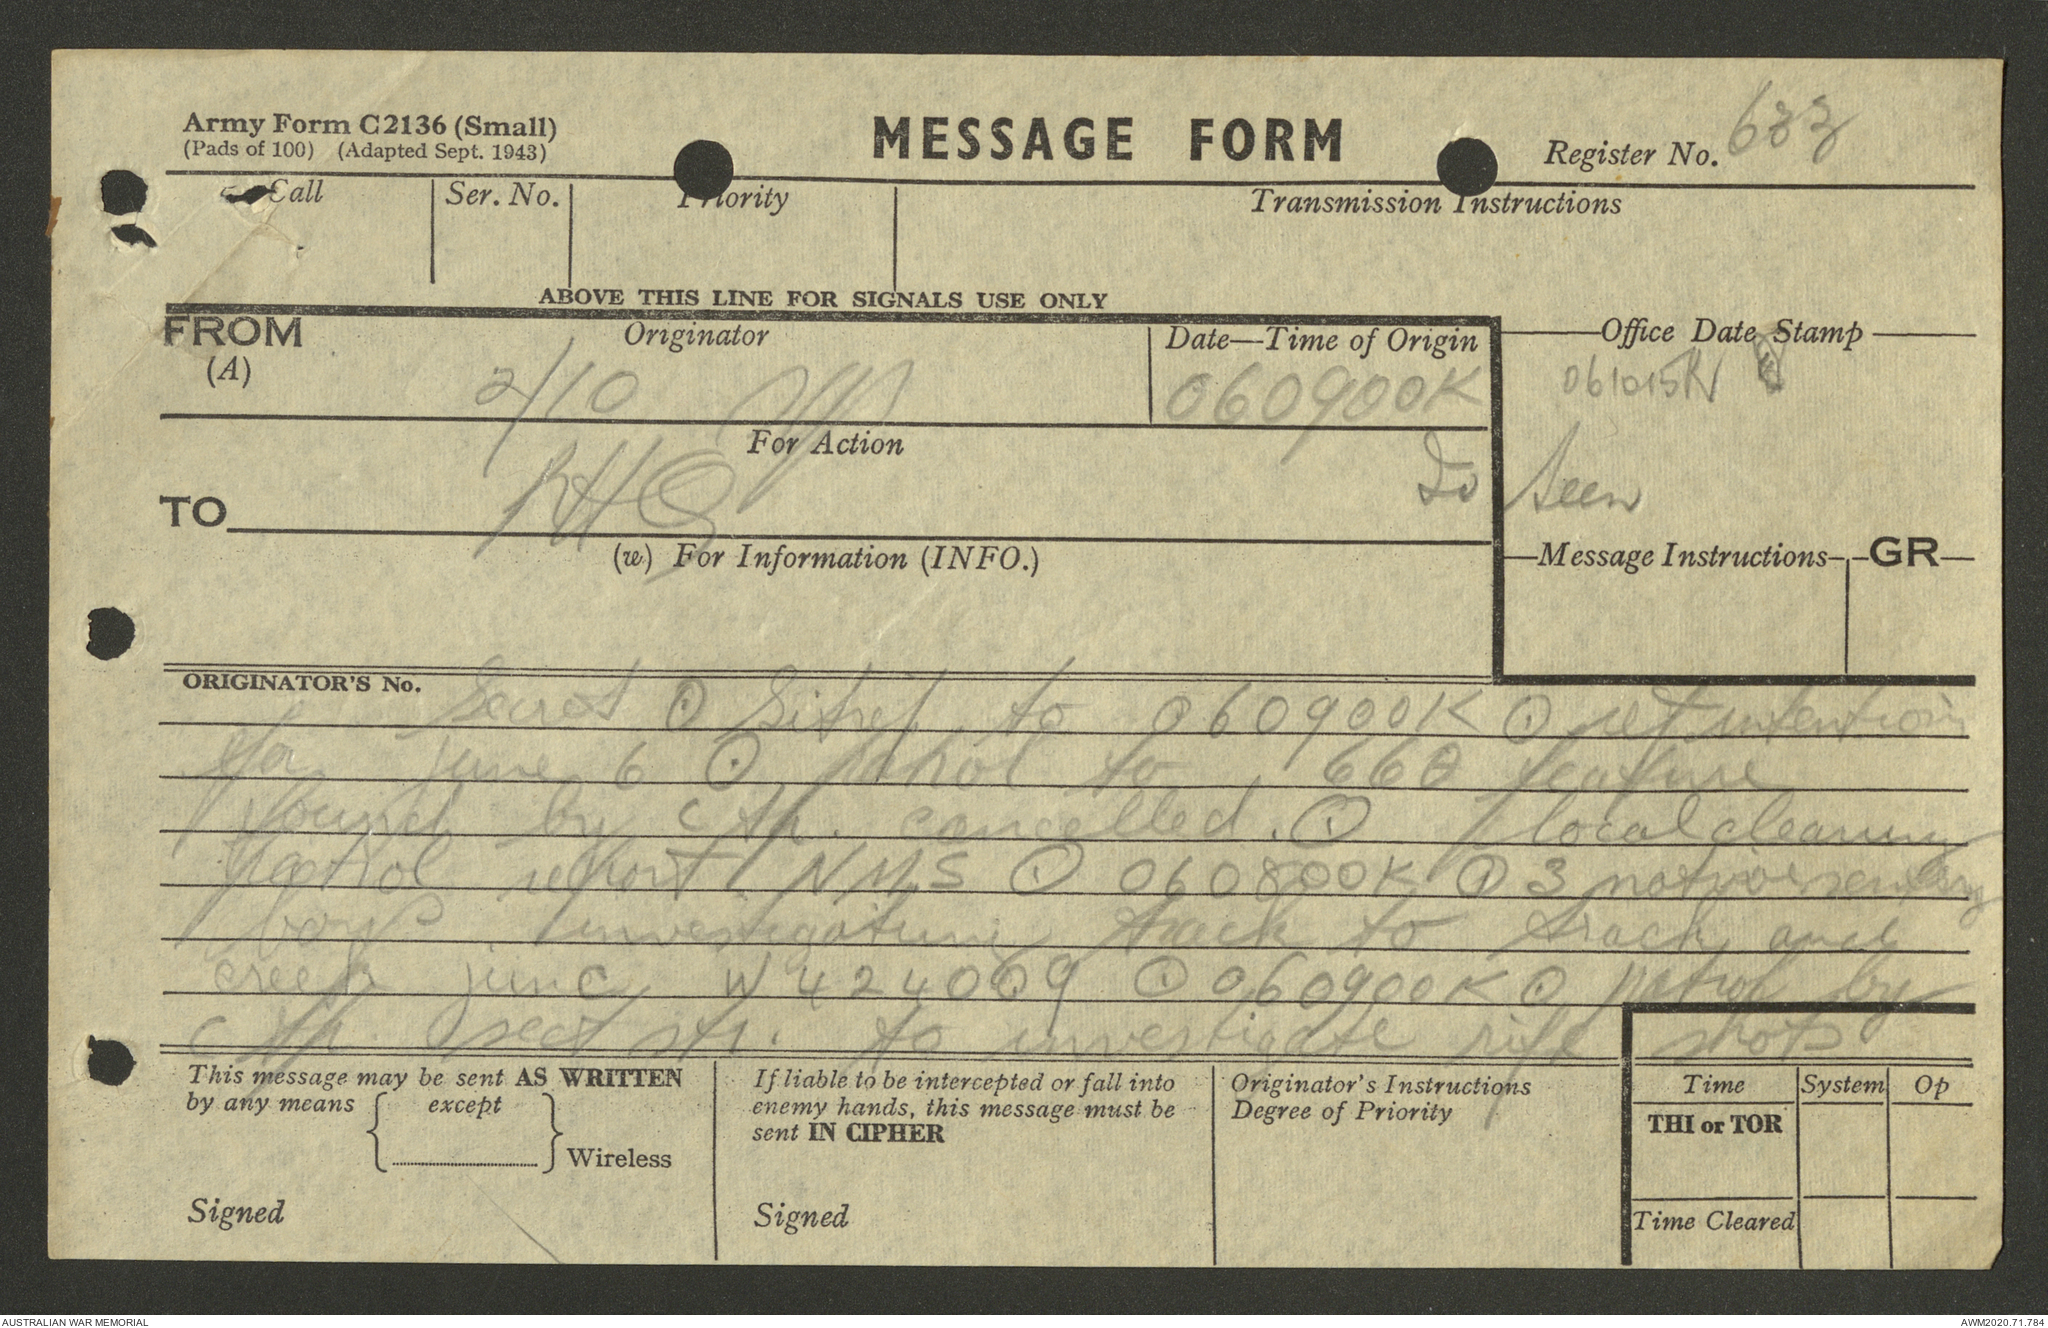 Army Form C2136 (Small)
(Pads of 100) (Adapted Sept. 1943)
MESSAGE FORM
Register No. 683
Call
Ser. No.
Priority
Transmission Instructions
ABOVE THIS LINE FOR SIGNALS USE ONLY
FROM
(A)
Originator
2/10
Date—Time of Origin
060900K
Office Date Stamp
061015K
For Action
TO
RHQ
IO Seen
(w) For Information (INFO.)
Message Instructions
GR
ORIGINATOR'S No.
Secret ⊙ Sitrep to 060900K ⊙ ref intention
for June 6 ⊙ patrol to 660 feature
found by C Tp. cancelled. ⊙ local clearing
patrol report NMS ⊙ 060800K ⊙ 3 native sentry
boys investigating track to track and
creek junc W 424009 ⊙ 060900K ⊙ patrol by
C Tp. sect str. to investigate rifle shots
This message may be sent AS WRITTEN
by any means except
Wireless
Signed
If liable to be intercepted or fall into
enemy hands, this message must be
sent IN CIPHER
Signed
Originator's Instructions
Degree of Priority
Time
System
Op
THI or TOR
Time Cleared
AUSTRALIAN WAR MEMORIAL
AWM2020.71.784